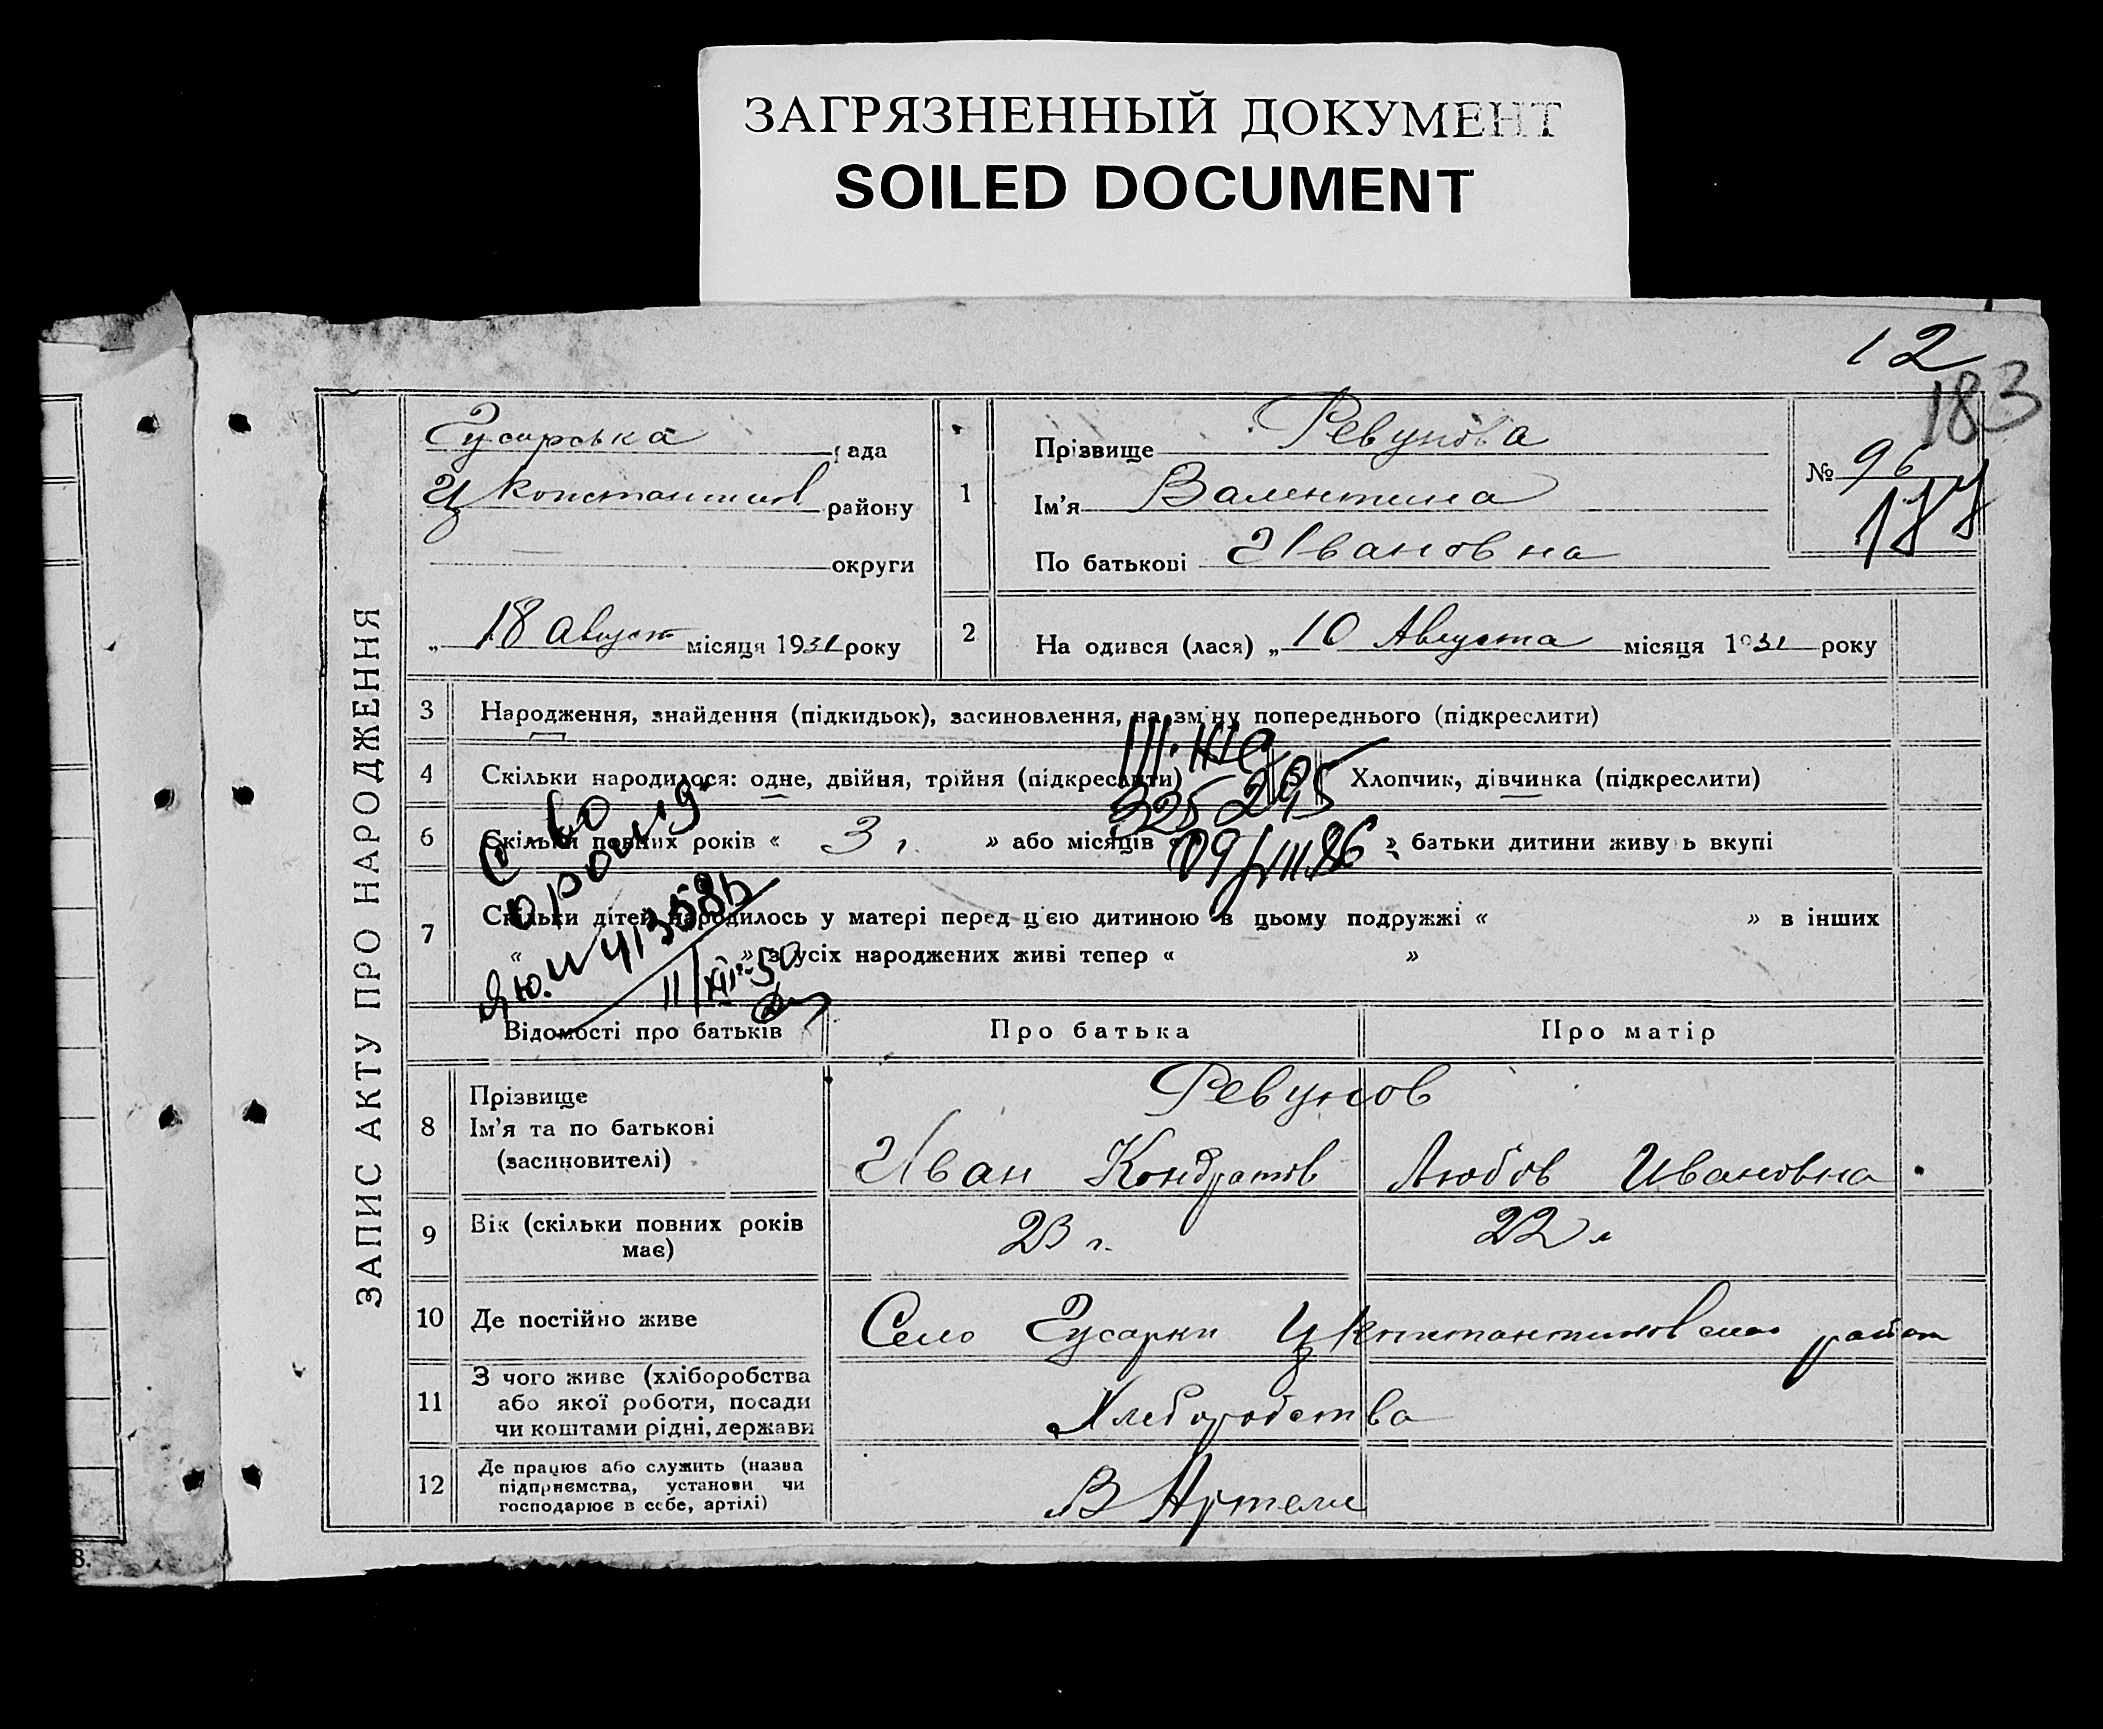 ЗАГРЯЗНЕННЫЙ ДОКУМЕНТ
SOILED DOCUMENT
12
183
ЗАПИС АКТУ ПРО НАРОДЖЕННЯ
Гусарська рада
Ц констант районy
округи
„ 18 август місяця 1931 року
1
Прізвище Ревунова
Ім'я Валентина
По батькові Ивановна
№ 96
2 На одився (лася) „ 10 Августа місяця 1931 року
3 Народження, знайдення (підкидьок), засиновлення, на зміну попереднього (підкреслити)
4 Скільки народилося: одне, двійня, трійня (підкреслити) Хлопчик, дівчинка (підкреслити)
6 Скільки повних років « 3 г. » або місяців « » батьки дитини живуть вкупі
7 Скільки дітей народилось у матері перед цією дитиною в цьому подружжі « » в інших
« » з усіх народжених живі тепер « »
III-ЖС
325295
С-во
ЯЮ. N 413585
11/XII-50
Відомості про батьків Про батька Про матір
8 Прізвище
Ім'я та по батькові
(засиновителі)
Ревунов
Иван Кондратов Любов Ивановна
9 Вік (скільки повних років має) 23 г. 22 г
10 Де постійно живе Село Гусарки Ц Константиновскаго район
11 З чого живе (хліборобства
або якої роботи, посади
чи коштами рідні, держави
Хлеборобства
12 Де працює або служить (назва
підприємства, установи чи
господарює в себе, артілі)
В Артели
8.